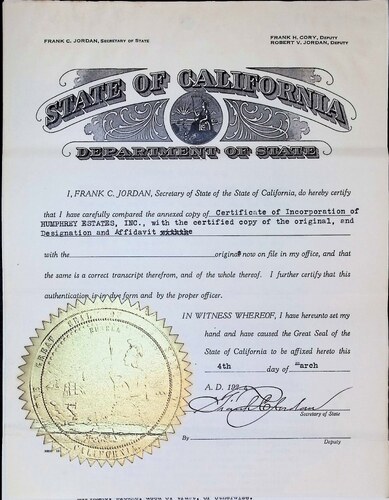 FRANK C. JORDAN, SECRETARY OF STATE
FRANK H. CORY, DEPUTY
ROBERT V. JORDAN, DEPUTY
STATE OF CALIFORNIA
DEPARTMENT OF STATE
I, FRANK C. JORDAN, Secretary of State of the State of California, do hereby certify
that I have carefully compared the annexed copy of Certificate of Incorporation of
HUMPHREY ESTATES, INC., with the certified copy of the original, and
Designation and Affidavit
with the original now on file in my office, and that
the same is a correct transcript therefrom, and of the whole thereof. I further certify that this
authentication is in due form and by the proper officer.
IN WITNESS WHEREOF, I have hereunto set my
hand and have caused the Great Seal of the
State of California to be affixed hereto this
4th day of March
A. D. 192
Frank C. Jordan
Secretary of State
By
Deputy
GREAT SEAL
EUREKA
CALIFORNIA